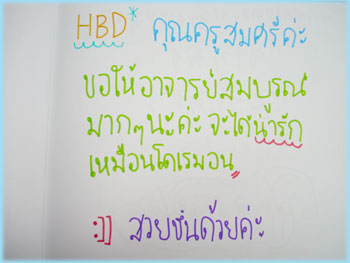 HBD* คุณครูสมศรีค่ะ
ขอให้อาจารย์สมบูรณ์
มากๆนะค่ะ จะได้น่ารัก
เหมือนโดเรมอน
:]] สวยขึ้นด้วยค่ะ